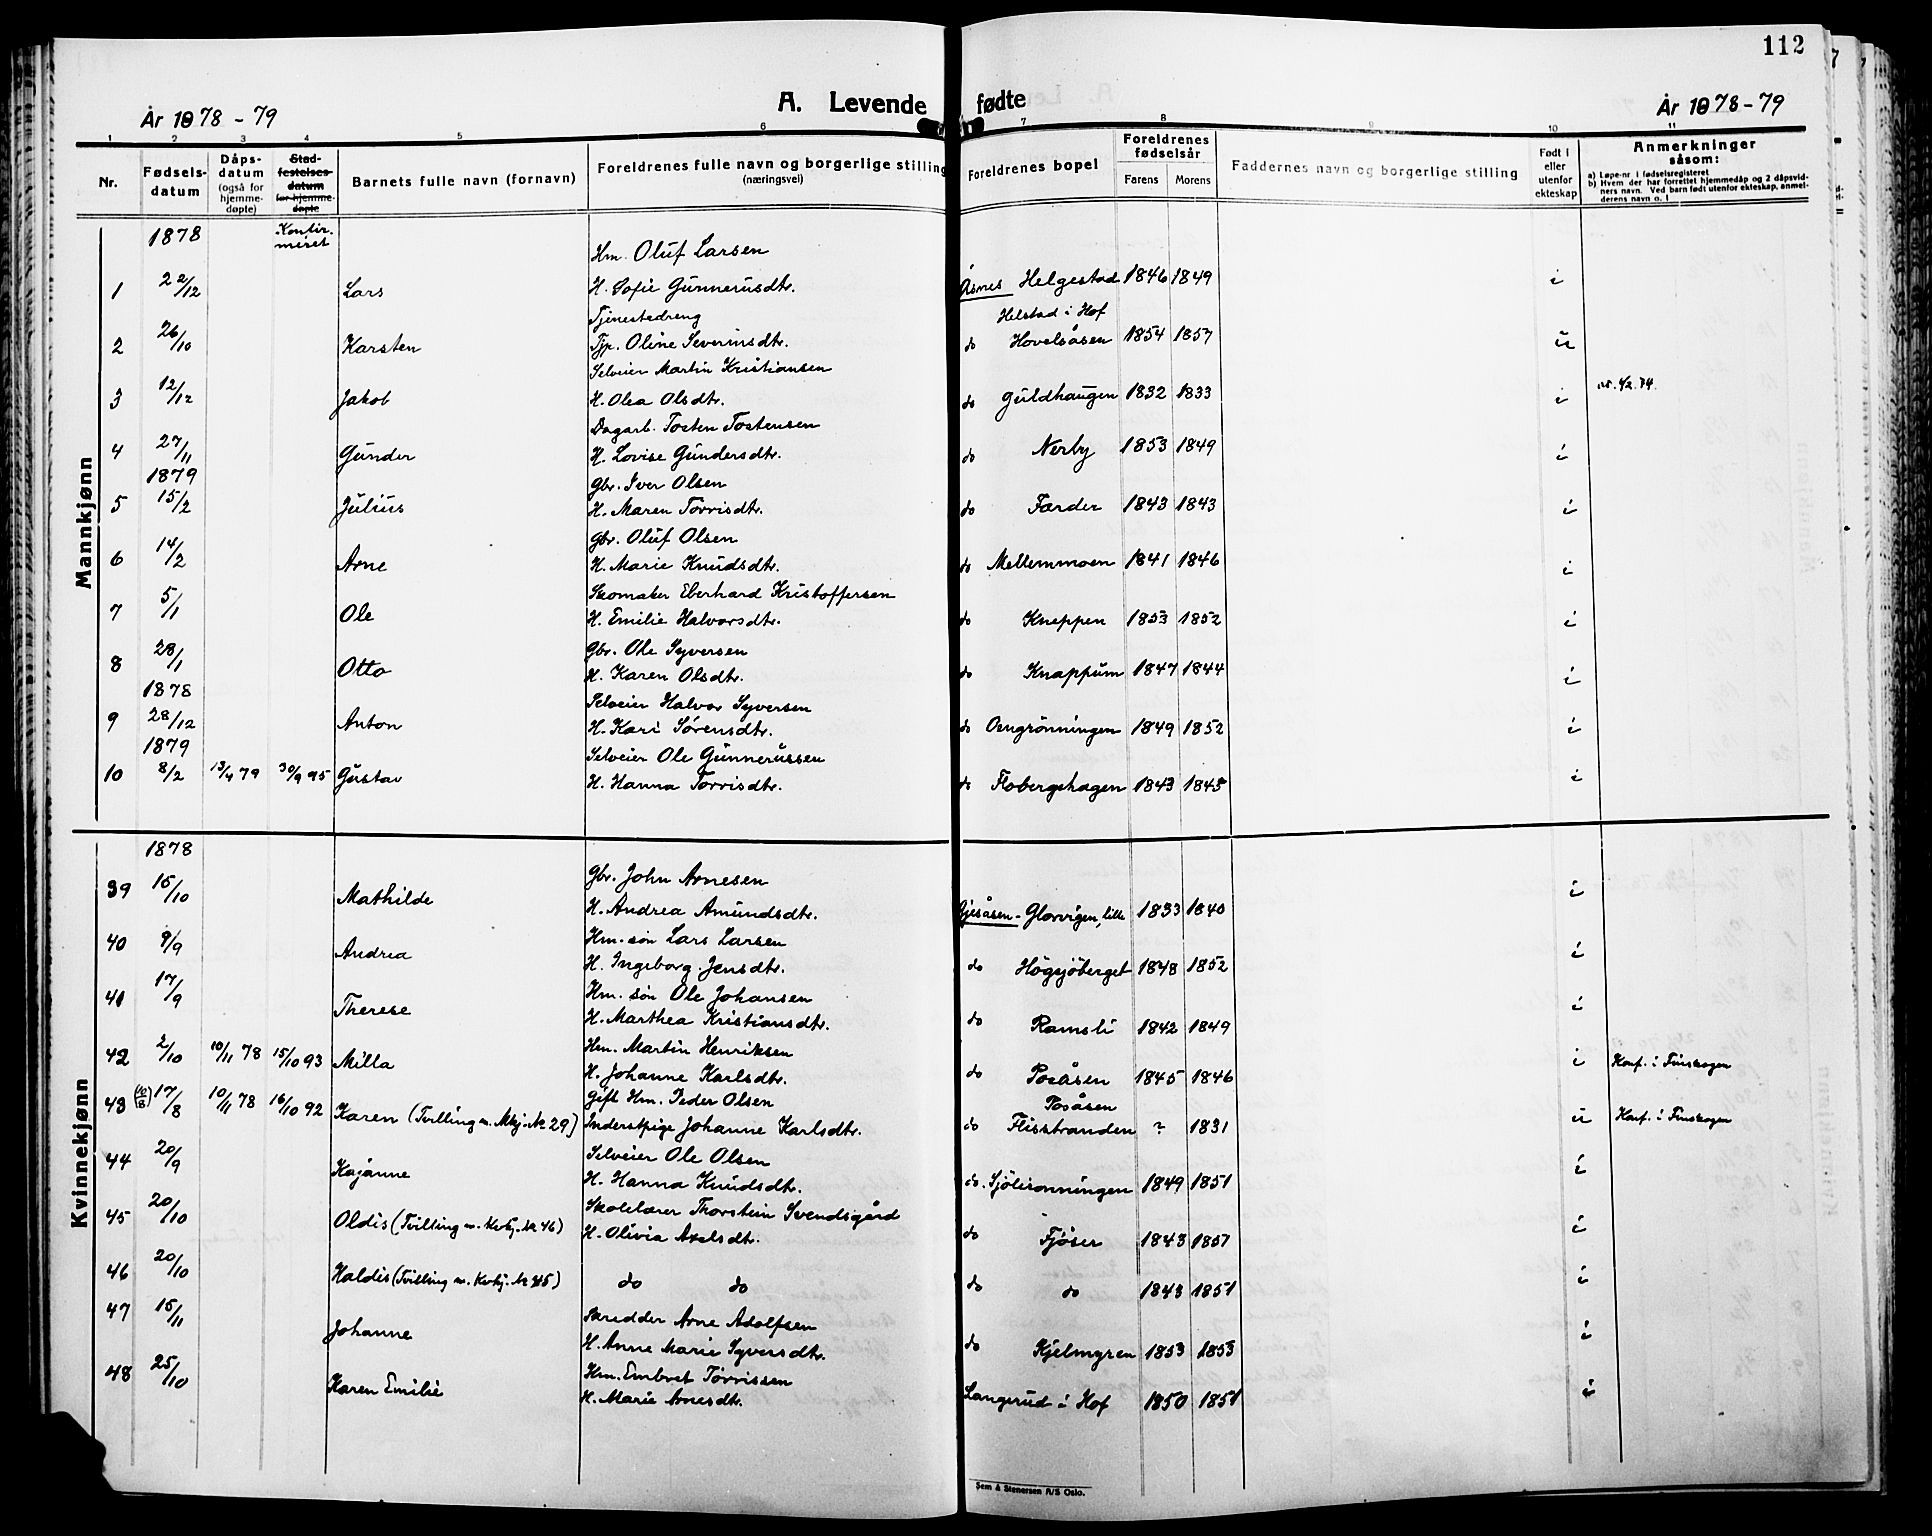 112
A. Levende fødte
År 1878-79
År 1878-79
1 2 3 4 5 6 7 8 9 10 11
Nr.
Fødsels-datum
Dåps-datum (også for hjemme-døpte)
Stad-festelses-datum for hjemme-døpte
Barnets fulle navn (fornavn)
Foreldrenes fulle navn og borgerlige stilling (næringsvei)
Foreldrenes bopel
Foreldrenes fødselsår
Farens Morens
Faddernes navn og borgerlige stilling
Født i eller utenfor ekteskap
Anmerkninger såsom:
a) Løpe-nr i fødselsregisteret
b) Hvem der har forrettet hjemmedåp og 2 dåpsvid-
ners navn. Ved barn født utenfor ekteskap, anmel-
derens navn o. l
Mannkjønn
1878 Konfir-meret
Hm. Oluf Larsen
1 22/12 Lars H. Sofie Gunnerusdtr. Åsnes Helgestad 1846 1849 i
Tjenestedreng Helstad i Hof
2 26/10 Karsten Tjp. Oline Severinsdtr. do Hovelsåsen 1854 1857 u
Selveier Martin Kristiansen
3 12/12 Jakob H. Olea Olsdtr. do Guldhaugen 1832 1833 i
Dagarb. Tosten Tostensen
4 27/11 Gunder H. Lovise Gundersdtr. do Nerby 1853 1849 i
1879 Gbr. Iver Olsen
5 15/2 Julius H. Maren Torrisdtr. do Færder 1843 1843 i
Gbr. Oluf Olsen
6 14/2 Arne H. Marie Knudsdtr. do Mellemmoen 1841 1846 i
Skomaker Eberhard Kristoffersen
7 5/1 Ole H. Emilie Halvorsdtr. do Kneppen 1853 1852 i
Gbr. Ole Syversen
8 28/1 Otto H. Karen Olsdtr. do Knappum 1847 1844 i
1878 Selveier Halvor Syversen
9 28/12 Anton H. Kari Sørensdtr. do Oengrønningen 1849 1852 i
1879 Selveier Ole Gunnerussen
10 8/2 13/4 79 30/9 95 Gustav H. Hanna Torrisdtr. do Flobergshagen 1843 1845 i
Kvinnekjønn
1878
Gbr. John Arnesen
39 15/10 Mathilde H. Andrea Amundsdtr. Gjesåsen - Glorvigen, lille 1833 1840 i
Hm. søn Lars Larsen
40 9/9 Andrea H. Ingeborg Jensdtr. do Högsjøberget 1848 1852 i
Hm. søn Ole Johansen
41 17/9 Therese H. Marthea Kristiansdtr. do Ramsli 1842 1849 i
Hm. Martin Henriksen
42 2/10 10/11 78 15/10 93 Milla H. Johanne Karlsdtr. do Posåsen 1845 1846 i Konf. i Finskogen
Gift Hm. Peder Olsen Posåsen
43 17/8 10/11 78 16/10 92 Karen (Tvilling m. Mkj. № 29) Inderstpige Johanne Karlsdtr. do Flisstranden ? 1831 u Konf. i Finskogen
Selveier Ole Olsen
44 20/9 Kajanne H. Hanna Knudsdtr. do. Sjölironningen 1849 1851 i
Skolelærer Thorstein Svendsgård
45 20/10 Oldis (Tvilling m. Kvkj. № 46) H. Olivia Axelsdtr. do Fjøser 1843 1857 i
46 20/10 Haldis (Tvilling m. Kvkj. № 45) do do do do 1843 1851 i
Skredder Arne Adolfsen
47 15/11 Johanne H. Anne Marie Syversdtr. do Kjelmyren 1853 1853 i
Hm. Embret Torrissen
48 25/10 Karen Emilie H. Marie Arnesdtr. Langerud i Hof 1850 1851 i
Sem & Stenersen A/S Oslo.